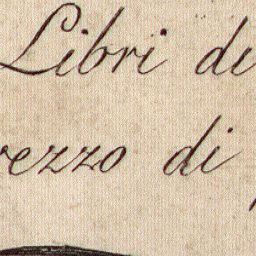 Libri di
rezzo di